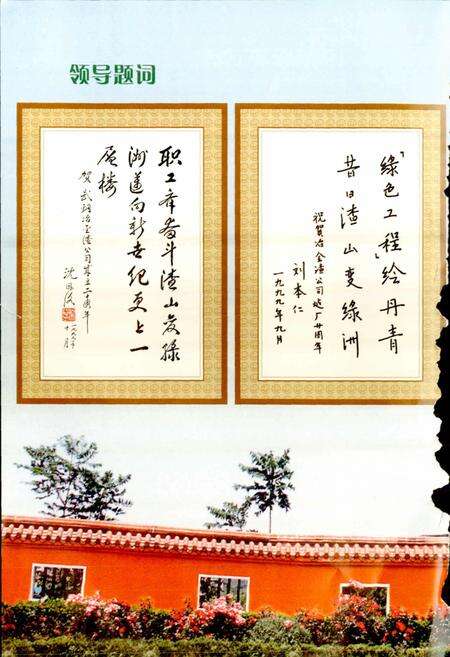 领导题词
「綠色工程」绘丹青
昔日渣山变綠洲
祝贺冶金渣公司建厂廿周年
刘本仁
一九九九年九月
职工奋斗渣山变綠
洲迈向新世纪更上一
层楼
贺武钢冶金渣公司成立二十周年
沈
一九九九年
十月